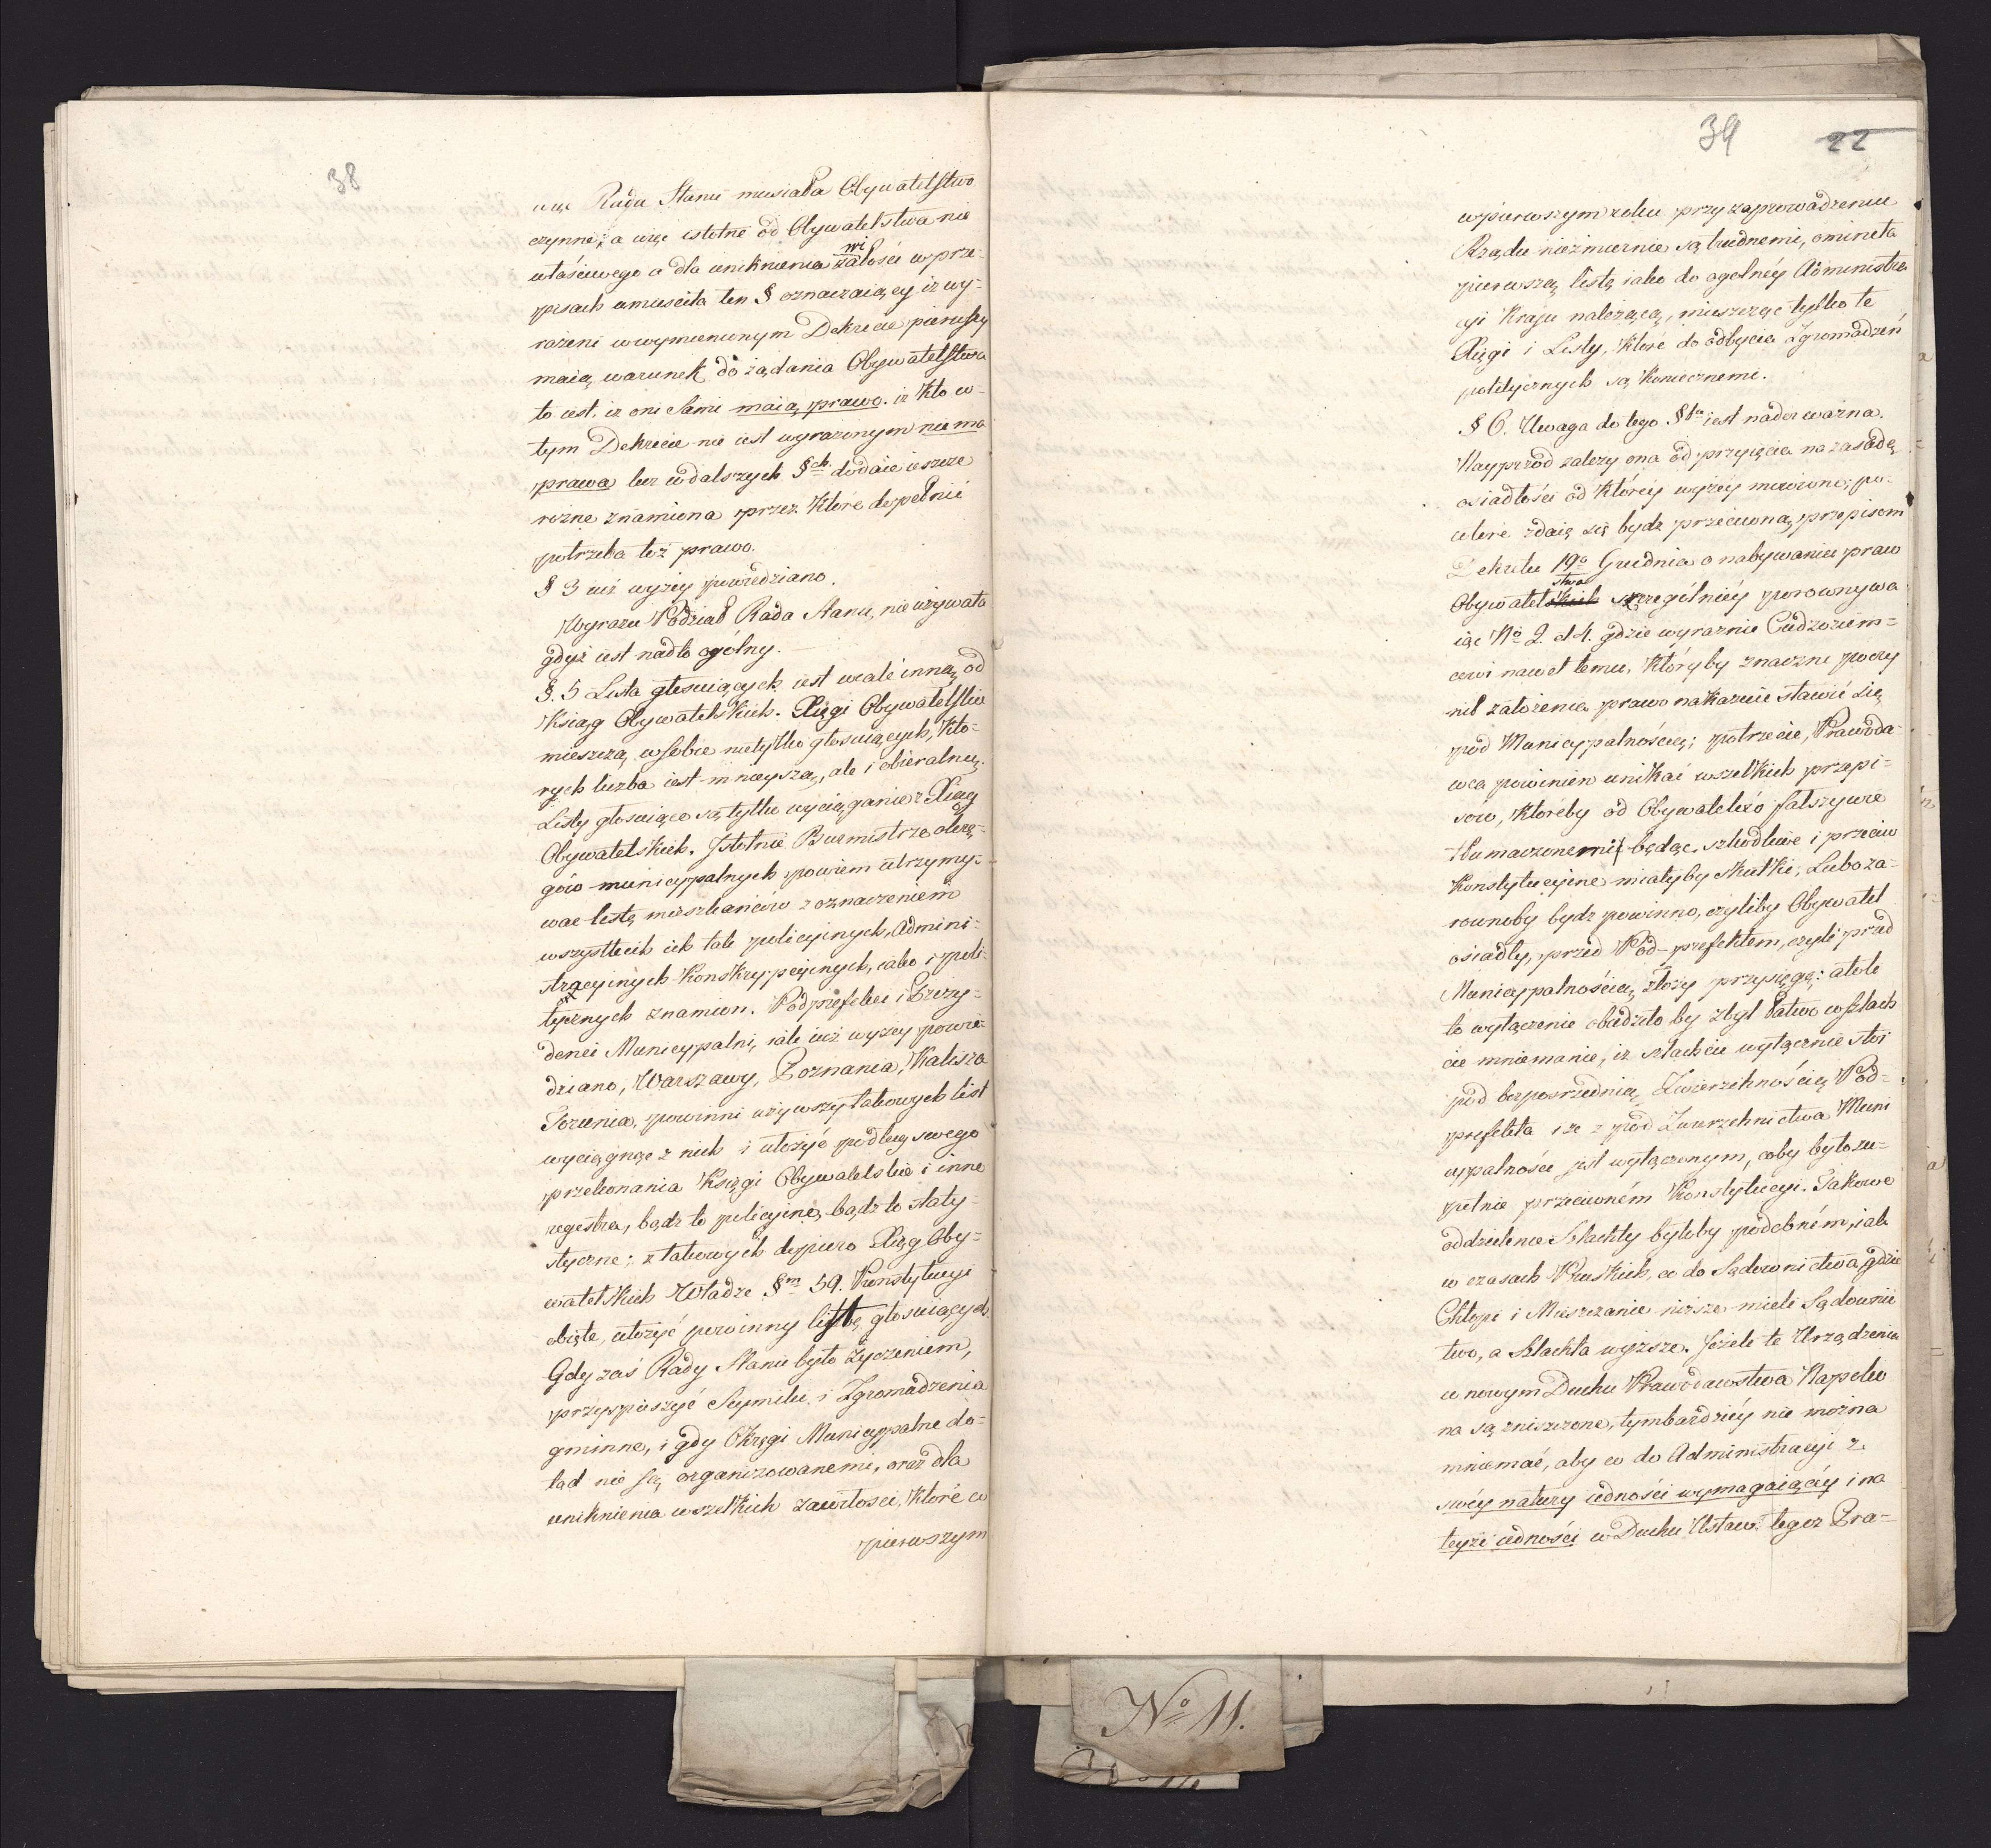 38
Rada Stanu musiała Obywatelstwo
czynne; a więc istotne od Obywatelstwa nie
właściwego a dla uniknienia zawiłości w prze-
pisach umieściła ten § oznaczaiący iż wy-
rażeni w wymienionym Dekrecie pierwszy
maią warunek do żądania Obywatelstwa
to iest, iż oni sami maią prawo. iż Kto w
tym Dekrecie nie iest wyrażonym nie ma
prawa lecz w dalszych §ch dodaie ieszcze
rożne znamiona przez Które dopełnić
potrzeba toż prawo.
§ 3 iuż wyżey powiedziano.
Wyrazu Podział Rada Stanu, nie używała
gdyż iest nadto ogólny.
§. 5 Lista głosuiących iest wcale inną od
Ksiąg Obywatelskich. Xięgi Obywatelstw
mieszczą w sobie nietylko głosuiących, Któ-
rych liczba iest mnieyszą, ale i obieralną.
Listy głosuiące są tylko wyciąganie z Xiąg
Obywatelskich. Istotnie Burmistrze okrę-
gów municypalnych powinni utrzymy-
wac listę mieszkańców z oznaczeniem
wszystkich ich tak policyinych, Admini-
stracyinych Konskrypcyinych, iako i poli-
tycznych znamion. Podprefekci i Prezy-
denci Municypalni, iak iuż wyżey powie-
dziano, Warszawy, Poznania, Kalisza
Torunia, powinni używszy takowych list
wyciągnąc z nich i ułożyć podług swego
przekonania Księgi Obywatelskie i inne
regestra, bądz to policyine, bądz to staty-
styczne; z takowych dopiero Xiąg Oby-
watelskich Władze §m 59. Konstytucyi
obięte, ułożyć powinny listę głosuiących.
Gdy zaś Rady Stanu było życzeniem,
przyspieszyć Seymiki i Zgromadzenia
gminne, i gdy Okręgi Municypalne do-
tąd nie są organizowanemi, oraz dla
uniknienia wszelkich zawiłosci, Które w
pierwszym
39 22
w pierwszym roku przy zaprowadzeniu
Rządu niezmiernie są trudnemi, ominęła
pierwszą listę iako do ogolnéy Administra
cyi Kraju należącą, mieszcząc tylko te
Xięgi i Listy, Które do odbycia Zgromadzeń
politycznych są Koniecznemi.
§ 6. Uwaga do tego §fu iest nader ważna.
Nayprzód zależy ona od przyięcia na zasadę
osiadłości od Któréy wyżey mówiono; po-
wtore zdaię się bydz przeciwną przepisom
Dekretu 19o Grudnia o nabywaniu praw
Obywatelstwa szczególniéy porownywa
iąc No 2. et 4. gdzie wyraznie Cudzoziem-
cowi nawet temu, Któryby znaczne poczy
nił założenia prawo nakazuie stawić się
pod Municypalnością; potrzecie, Prawoda-
wca powinien unikać wszelkich przepi-
sów, Któreby od Obywatelów fałszywie
tłumaczonemi będąc, szkodliwe i przeciw
Konstytucyine miałyby skutki; Lubo za-
rownoby bydz powinno, czyliby Obywatel
osiadły, przed Pod-prefektem, czyli przed
Municypalnością złoży przysięgę: atoli
to wyłączenie obudziło by zbyt łatwo w szlach
cie mniemanie, iż szlachcic wyłącznie stoi
pod bezposrednią Zwierzchnością Pod-
prefekta i że z pod Zwierzchnictwa Muni
cypalności jest wyłączonym, coby było zu-
pełnie przeciwném Konstytucyi. Takowe
oddzielenie Szlachty byłoby podobném, iak
w czasach Pruskich, co do Sądownictwa, gdzie
Chłopi i Mieszczanie niższe mieli Sądownic
two, a Szlachta wyższe. Jeżeli te Urządzenia
w nowym Duchu Prawodawstwa Napoleo
na są zniszczone, tymbardziéy nie można
mniemać, aby co do Administracyi z
swéy natury iedności wymagaiącéy i na
teyże iedności w Duchu Ustaw tegoż Pra-
No 11.